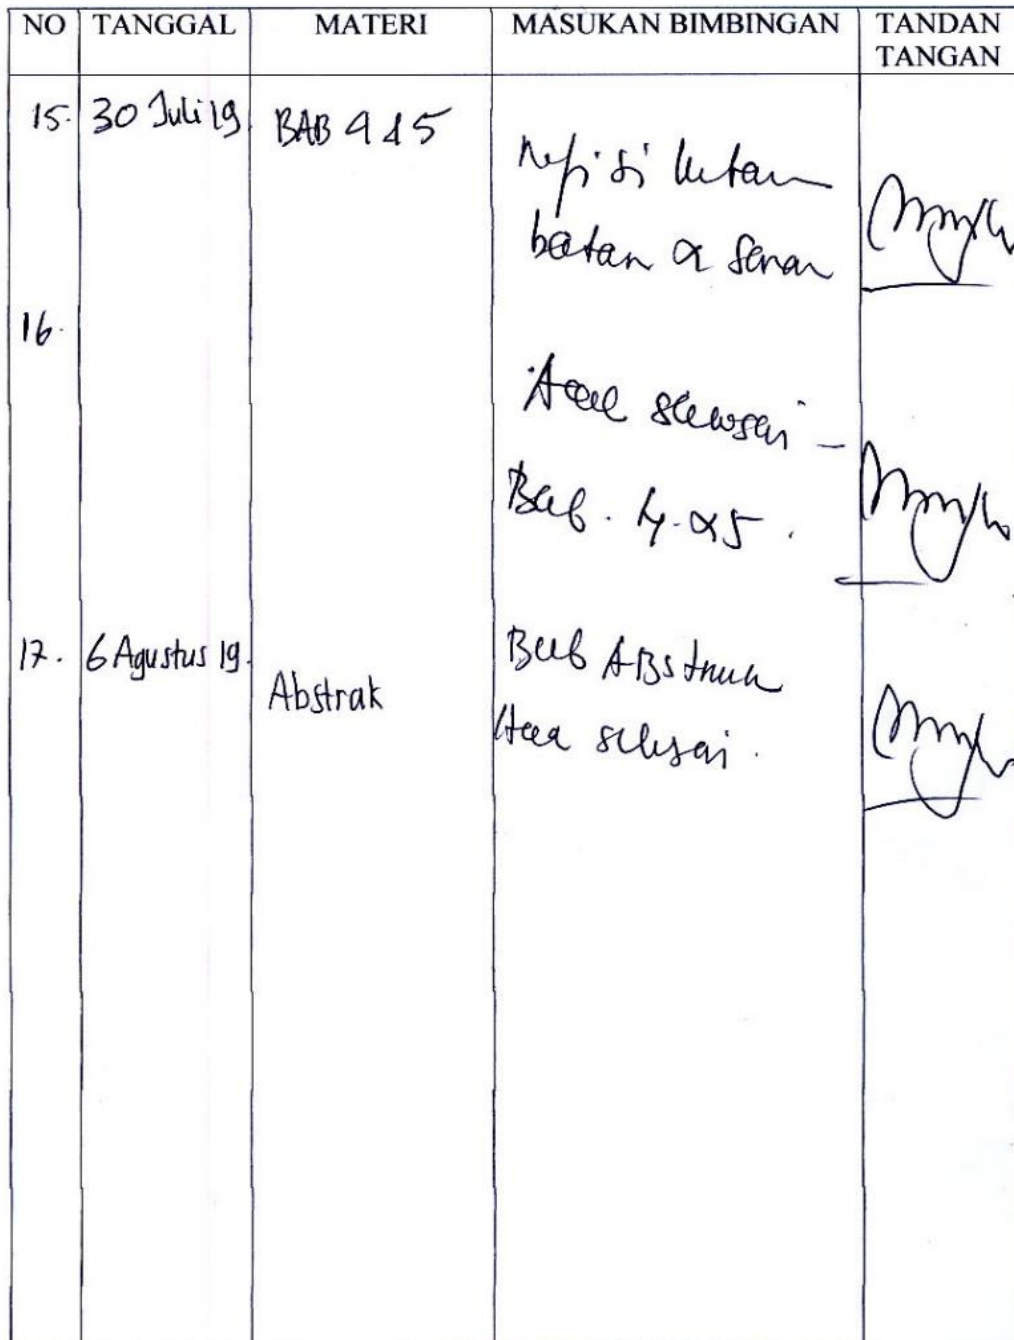 NO TANGGAL MATERI MASUKAN BIMBINGAN TANDAN TANGAN
15. 30 Juli 19 BAB 4 & 5
batan & saran
16.
selesai -
Bab. 4. & 5.
17. 6 Agustus 19. Abstrak
Bab ABstrak
selesai.